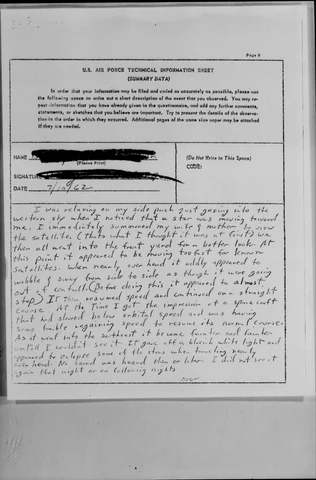 Page 9
U.S. AIR FORCE TECHNICAL INFORMATION SHEET
(SUMMARY DATA)
In order that your information may be filed and coded as accurately as possible, please use
the following space to write out a short description of the event that you observed. You may re-
peat information that you have already given in the questionnaire, and add any further comments,
statements, or sketches that you believe are important. Try to present the details of the observa-
tion in the order in which they occurred. Additional pages of the same size paper may be attached
if they are needed.
NAME
(Please Print)
(Do Not Write in This Space)
CODE:
SIGNATURE
DATE 7/10/62
I was relaxing on my side porch just gazing into the
western sky when I noticed that a star was moving toward
me. I immediately summoned my wife & mother to view
the satellite. (thats what I thought it was at first) We
then all went into the front yard for a better look. At
this point it appeared to be moving too fast for known
satellites. When nearly over head it oddly appeared to
wobble & sway from side to side as though it were going
out of control. (Before doing this it appeared to almost
stop) It then resumed speed and continued on a straight
course. At the time I got the impression of a space craft
that had slowed below orbital speed and was having
some trouble regaining speed to resume its normal course.
As it went into the it became fainter and fainter
untill I couldn't see it. It gave off a bluish white light and
appeared to eclipse some of the stars when traveling nearly
over head. No sound was heard then or later. I did not see it
again that night or on following nights.
over